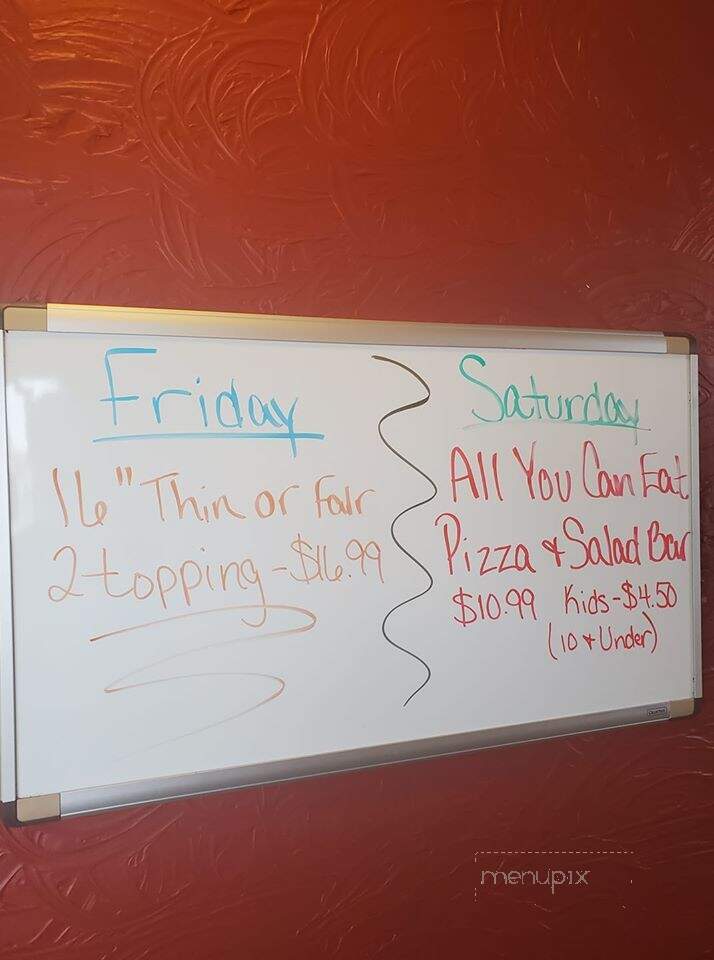 Friday
16" Thin or Fair
2 topping - $16.99
Saturday
All You Can Eat
Pizza & Salad Bar
$10.99 Kids - $4.50
(10 & Under)
menupix